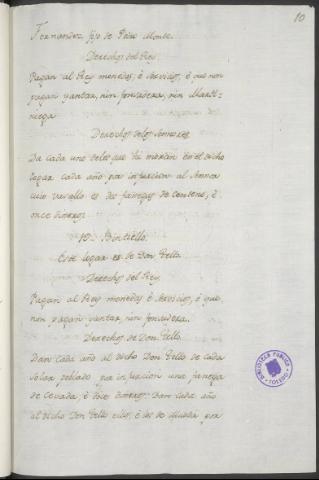 10
Fernandez fijo de Pedro Monte.
Derechos del Rey.
Pagan al Rey monedas, è servicios, è que non
pagan yantar, nin fonsadera, nin Marti-
niega
Derechos de los Señores
Da cada uno de los que hi moran en el dicho
logar cada año por infurcion al Señor
cuio vasallo es dos fanegas de centeno, è
once dineros.
Este logar es de Don Tello
Derechos del Rey.
Pagan al Rey monedas è servicios, è que
non pagan yantar, nin fonsadera.
Derechos de Don Tello.
Dan cada año al dicho Don Tello de cada
solar poblado por infurcion una fanega
de cevada, è doce dineros. Dan cada año
al dicho Don Tello
BIBLIOTECA PUBLICA
TOLEDO